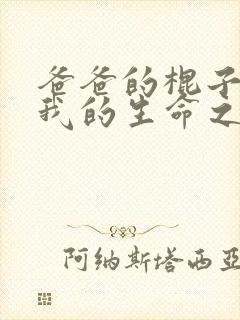 爸爸的棍子
我的生命之
阿纳斯塔西亚